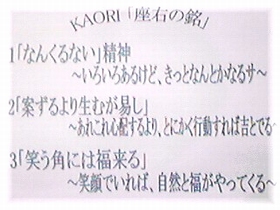 KAORI「座右の銘」
1「なんくるない」精神
～いろいろあるけど、きっとなんとかなるサ～
2「案ずるより生むが易し」
～あれこれ心配するより、とにかく行動すれば吉とでる～
3「笑う角には福来る」
～笑顔でいれば、自然と福がやってくる～